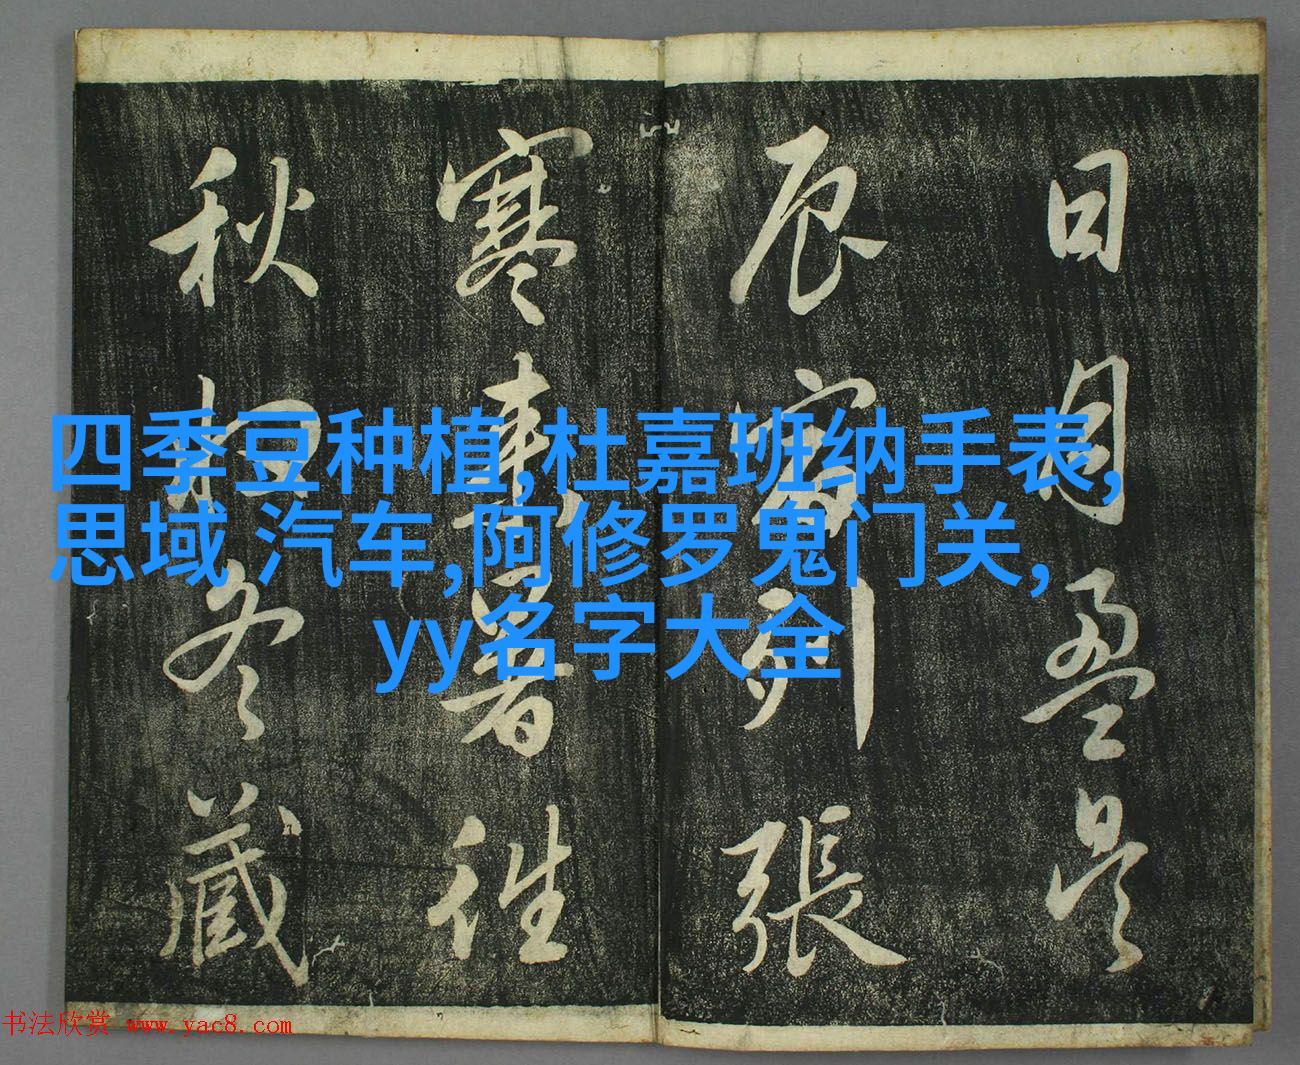 日月盈昃
辰宿列張
寒來暑往
秋收冬藏
四季豆种植,杜嘉班纳手表,
思域 汽车,阿修罗鬼门关,
yy名字大全
书法欣赏 www.yac8.com